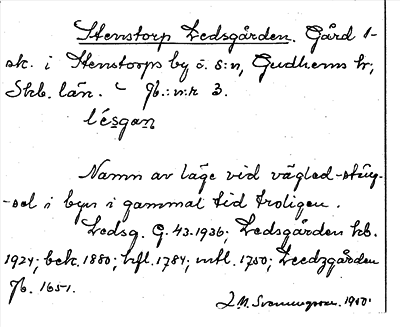 Stenstorp Ledsgården. Gård 1-
sk. i Stenstorps by o. s:n, Gudhems hr,
Skb. län. Jb.: n:r 3.
lésgan
Namn av läge vid vägled-stäng-
-sel i byn i gammal tid troligen.
Ledsg. G. 43.1936; Ledsgården kb.
1924; bek. 1880; hfl. 1784; mtl. 1750; Leedzgården
Jb. 1651.
1900.